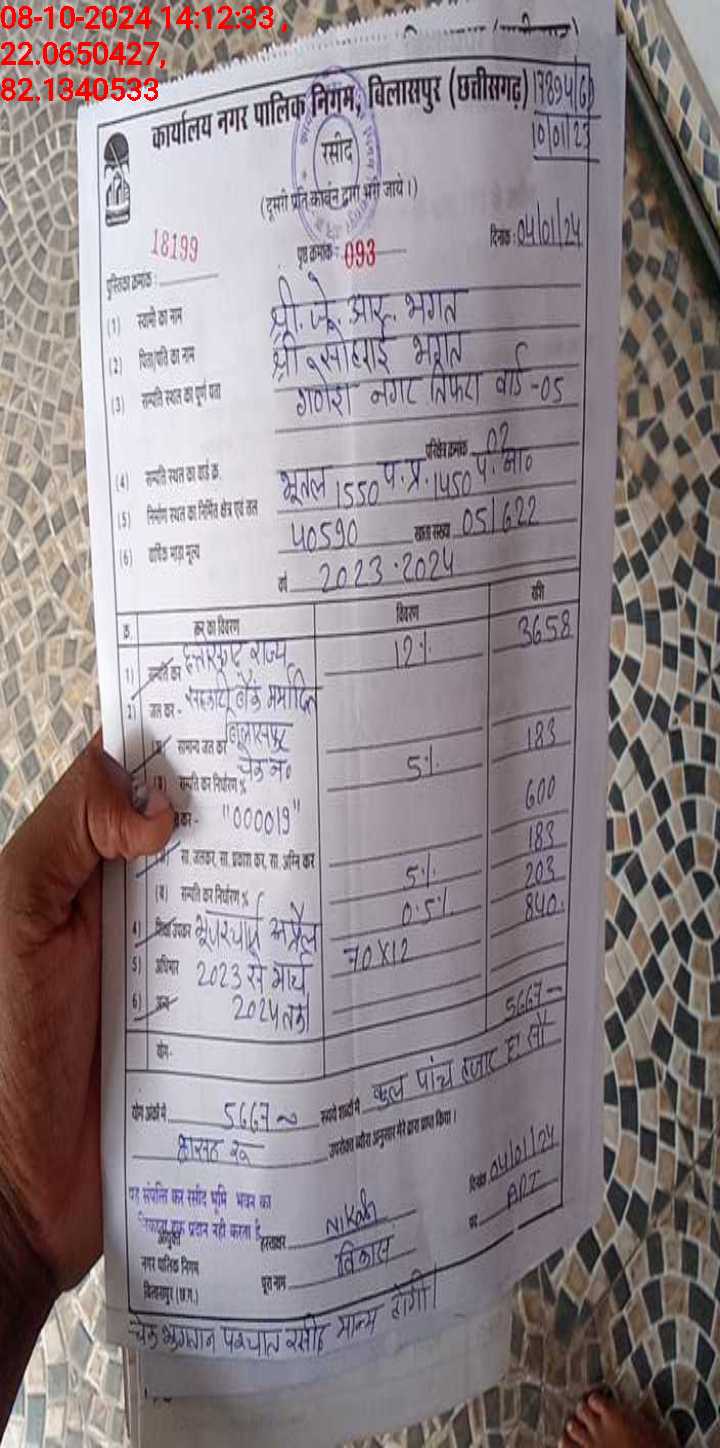 08-10-2024 14:12:33 ,
22.0650427,
82.1340533
कार्यालय नगर पालिक निगम, बिलासपुर (छत्तीसगढ़)
10/01/23
रसीद
(दूसरी प्रति कार्बन द्वारा भरी जाये।)
पुस्तिका क्रमांक : 18199 पृष्ठ क्रमांक : 093 दिनांक : 04/01/24
(1) स्वामी का नाम श्री. जे. आर. भगत
(2) पिता/पति का नाम श्री भगत
(3) सम्पत्ति स्थल का पूर्ण पता गणेश नगर तिफरा वार्ड -05
(4) सम्पत्ति स्थल का वार्ड क्र. परिक्षेत्र क्रमांक 02
(5) निर्माण स्थल का निर्मित क्षेत्र एवं तल भूतल 1550 प.प्र. 1450
(6) वार्षिक भाड़ा मूल्य 40590 खाता संख्या 05/622
वर्ष 2023-2024
क्र. कर का विवरण विवरण राशि
1) सम्पत्ति कर राज्य 12% 3658
2) जल कर - सहकारी बैंक मर्यादित
सामान्य जल कर बिलासपुर 183
सम्पत्ति कर निर्धारण % चेक नं० 5%
कर - "000019" 600
सा. जलकर, सा. प्रकाश कर, सा. अग्नि कर 183
(ब) सम्पत्ति कर निर्धारण % 5% 203
4) शिक्षा उपकर अप्रैल 0.5% 840
5) अधिभार 2023 से मार्च 70x12
6) अन्य 2024 तक
योग- 5667-
योग अंकों में 5667 रूपये शब्दों में कुल पांच हजार छः सौ
उपरोक्त ब्यौरा अनुसार मेरे द्वारा प्राप्त किया।
दिनांक 04/01/24
यह संपत्ति कर रसीद भूमि भवन का
हक प्रदान नही करता है
आयुक्त हस्ताक्षर पद ART
नगर पालिक निगम
बिलासपुर (छ.ग.) पूरा नाम विकास
चेक भुगतान पश्चात रसीद मान्य होगी।